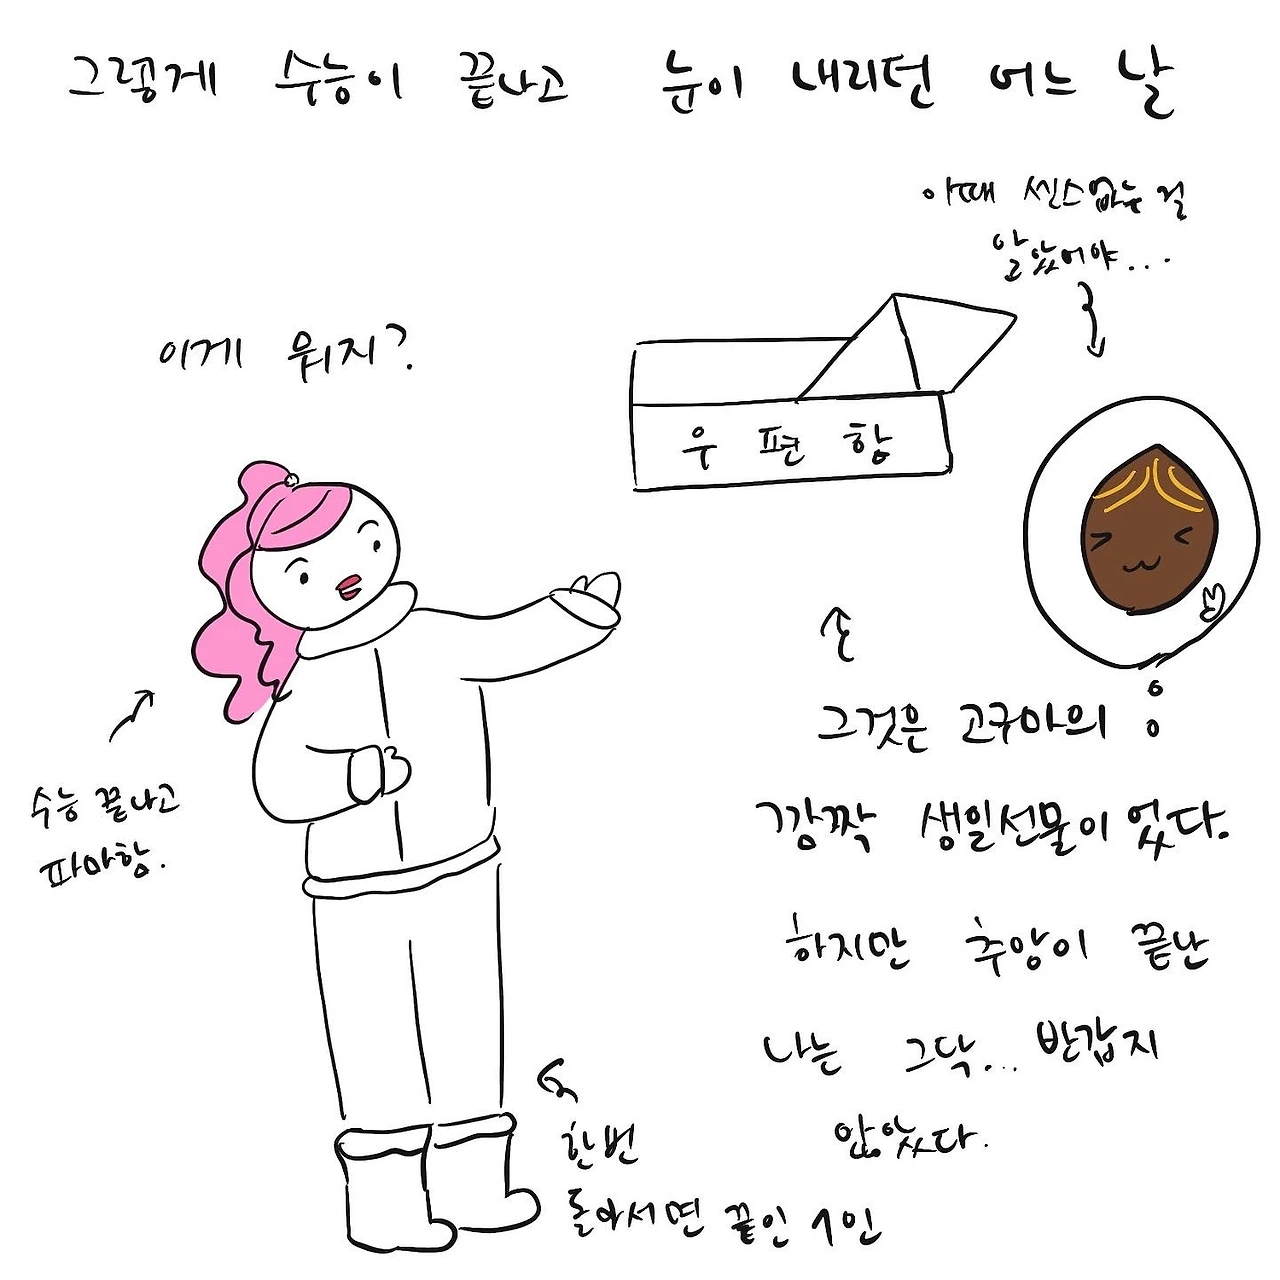 그렇게 수능이 끝나고 눈이 내리던 어느 날
아때 씬스없는걸
알았어야...
이게 뭐지?
우편함
수능 끝나고
파마함.
그것은 고구마의
깜짝 생일선물이었다.
하지만 추앙이 끝난
나는 그닥... 반갑지
않았다.
한번
돌아서면 끝인 1인